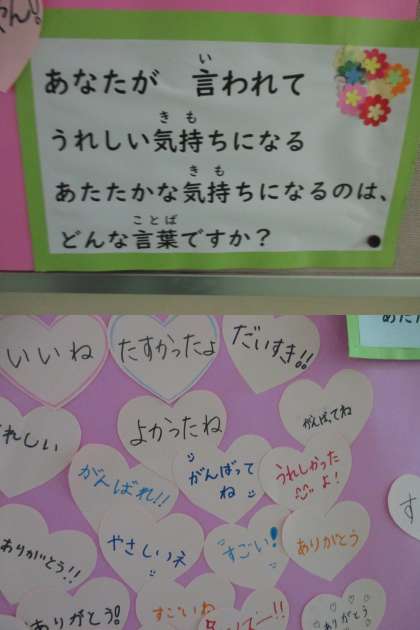 ゃん!
あなたが 言われて
い
うれしい気持ちになる
きも
あたたかな気持ちになるのは、
きも
どんな言葉ですか?
ことば
いいね
たすかったよ
だいすき!!
れしい
よかったね
がんばってね
がんばれ!!
がんばって
ね
うれしかった
よ!
ありがとう!!
やさしいネ
すごい!
ありがとう
す
ありがとう!
すごいね
ありがとう